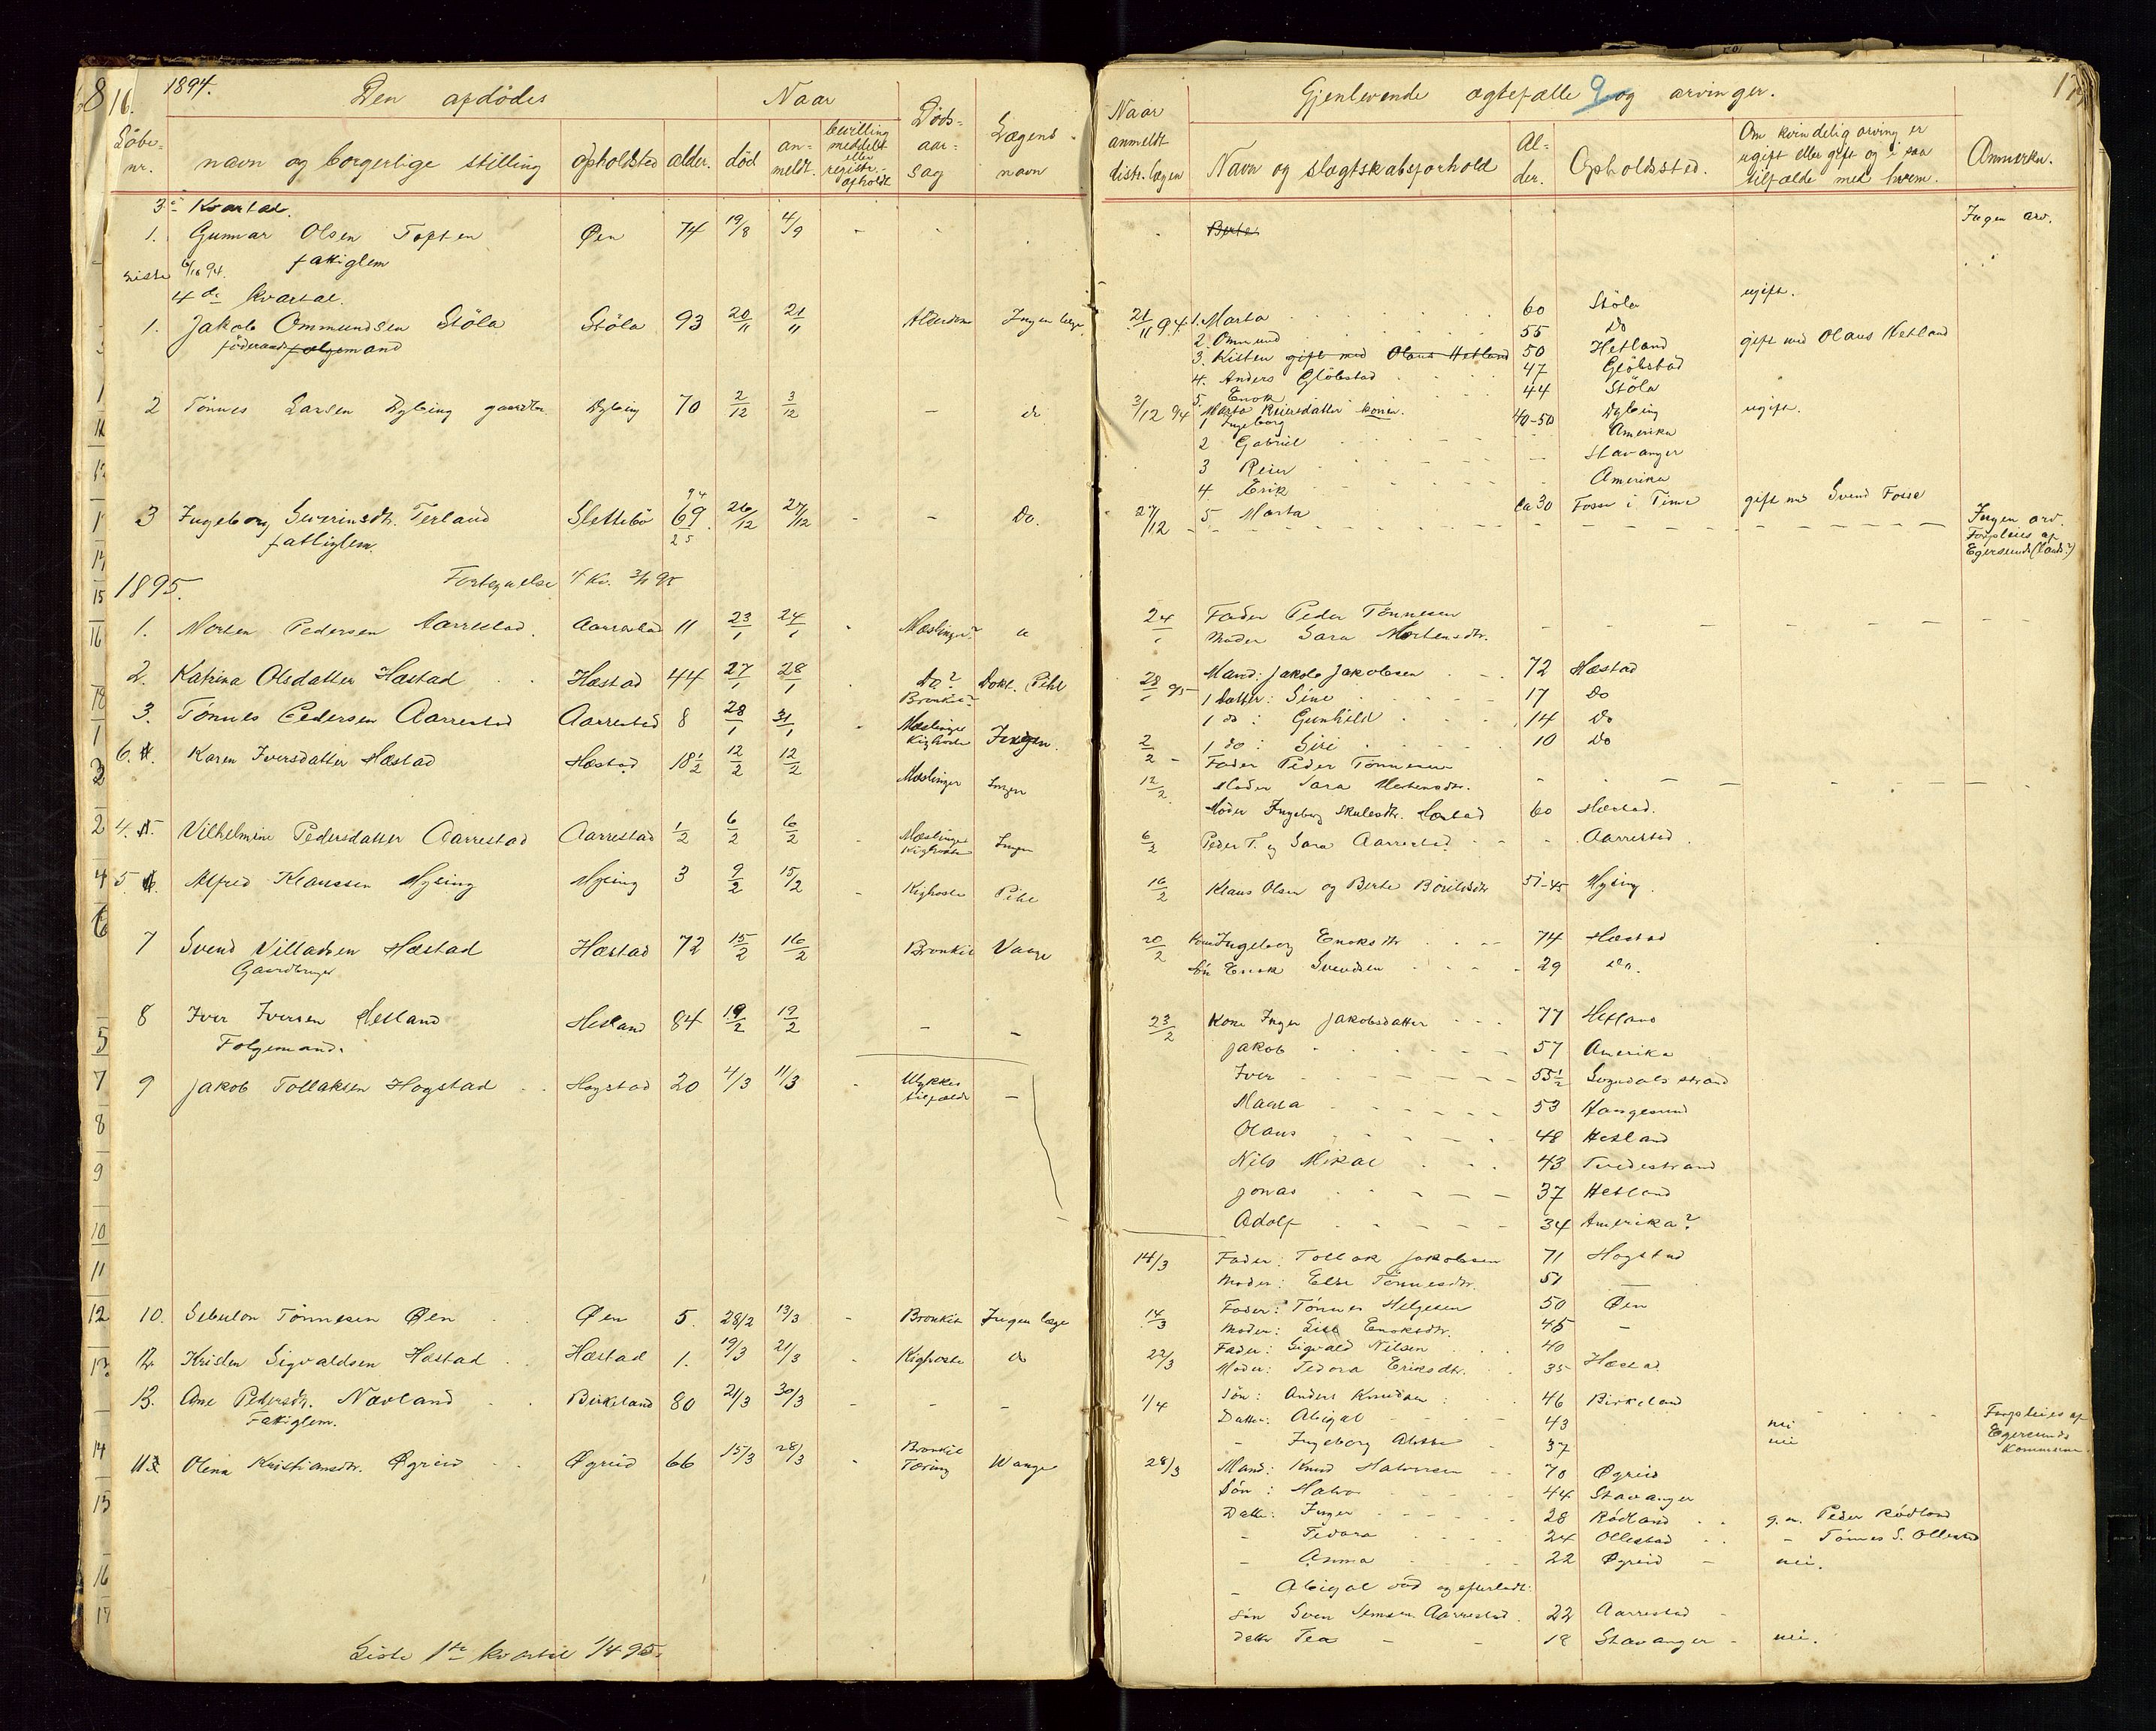 16.
1894.
Den afdödes
Naar
Döds-
aar-
sag
Lægens
navn
Löbe-
nr.
navn og borgerlige stilling
opholdsted
alder.
död
an-
meldt.
bevilling
meddelt
eller
registr.-
afholdt
3die Kvartal.
1. Gunnar Olsen Toften Øen 74 19/8 4/9 - -
fattiglem
Liste 6/10 94.
4de kvartal.
1. Jakob Ommundsen Stöla Stöla 93 20/11 21/11 Alderdom Ingen læge
föderaadsfolgemand
2 Tönnes Larsen Dybing gaardbr. Dybing 70 2/12 3/12 - do
3 Ingeborg Severinsdtr. Terland Slettebö 69 26/12 27/12 - - Do.
94
25
fattiglem.
1895. Fortegnelse 4 Kv. 3/1 95
1. Morten Pedersen Aarrestad. Aarrestad 11 23/1 24/1 - Mæslinger?
2. Katrina Olsdatter Hæstad Hæstad 44 27/1 28/1 Do? Dokt. Pihl
Bronkit?
3. Tönnes Pedersen Aarrestad Aarrestad 8 28/1 31/1 Mæslinger Kighoste Ingen.
6. Karen Iversdatter Hæstad Hæstad 18 1/2 12/2 12/2 Mæslinger Ingen
4. Vilhelmine Pedersdatter Aarrestad Aarrestad 1/2 6/2 6/2 - Mæslinger Kighoste Ingen
5. Alfred Klaussen Mysing Mysing 3 9/2 15/2 - Kighoste Pihl
7 Svend Villadsen Hæstad Hæstad 72 15/2 16/2 Bronkit Vaage
Gaardbruger
8 Iver Iversen Hetland Hetland 84 19/2 19/2 - -
Folgemand.
9 Jakob Tollaksen Hogstad Hogstad 20 4/3 11/3 - Ulykkes tilfælde -
10. Sebulon Tönnesen Øen Øen 5. 28/2 13/3 - Bronkit Ingen læge
12. Kristen Sigvaldsen Hæstad Hæstad 1. 19/3 21/3 - Kighoste do
13. Ane Pedersdtr. Nævland Birkeland 80 21/3 30/3 - - -
Fattiglem.
11. Olene Kristiansdtr. Øgreid Øgreid 66 15/3 28/3 - Bronkit Tæring Waage
Liste 1ste kvartal 1/4 95.
17
Gjenlevende ægtefælle og arvinger.
9
Naar
anmeldt
distr.lægen
Navn og slægtskabsforhold
Al-
der.
Opholdssted.
Om kvindelig arving er
ugift eller gift og i saa
tilfælde med hvem.
Anmærkn.
Berte Ingen arv.
21/11 94 1. Marta 60 Stöla ugift.
2. Ommund 55 Do
3. Kisten gift med Olaus Hetland 50 Hetland gift med Olaus Hetland
4. Anders Glöbstad 47 Glöbstad
5. Enok 44 Stöla
3/12 94 Marta Reiersdatter kone.
1 Ingeborg 40-50 Dybing ugift.
2 Gabriel - Amerika
3 Reier - Stavanger
4. Erik - Amerika
5 Marta ca 30 Fosse i Time gift med Svend Fosse
27/12 Ingen arv.
Forpleies af
Egersund (Lands?)
24/1 Fader Peder Tönnesen
Moder Sara Mortensdtr.
28/1 95 Mand: Jakob Jakobsen 72 Hæstad
1 Datter: Sine 17 Do
1 do: Gunhild 14 Do
1 do: Siri 10 Do
2/2 - Fader Peder Tönnesen
Moder Sara Mortensdtr.
12/2 Moder Ingeborg Skulesdtr. Hæstad 60 Hæstad.
6/2 Peder T. og Sara Aarrestad - - Aarrestad.
16/2 Klaus Olsen og Berte Böieldsdtr 51-45 Mysing.
20/2 Kone Ingeborg Enoksdtr 74 Hæstad
Sön Enok Svendsen 29 Do.
23/2 Kone Inger Jakobsdatter 77 Hetland
Jakob 57 Amerika
Iver 55 1/2 Sogndals strand
Maria 53 Haugesund
Olaus 48 Hetland
Nils Mikal 43 Tvedestrand
Jonas 37 Hetland
Adolf 34 Amerika?
14/3 Fader: Tollak Jakobsen 71 Hogstad
Moder: Else Tönnesdtr. 51 -
14/3 Fader: Tönnes Helgesen 50 Øen
Moder: Lise Enoksdtr. 45 -
22/3 Fader: Sigvald Nilsen 40
Moder: Tedora Eriksdtr. 35 Hæstad
1/4 Sön: Anders Knudsen 46 Birkeland
Datter: Abigal 43 nei
- Ingeborg 37 nei
Forpleies af
Egersunds
Kommune
28/3 Mand: Knud Halvorsen 70 Øgreid
Sön: Halvor 44 Stavanger
Datter: Inger 28 Rödland g.m. Peder Rödland
- Tedora 24 Ollestad - Tönnes S. Ollestad
- Anna 22 Øgreid - nei.
- Abigal död og efterladt:
sön Sven Simsen Aarrestad. 22 Aarrestad
datter Tea 18 Stavanger - nei.